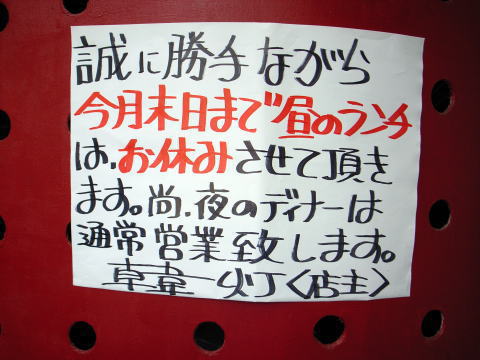 誠に勝手ながら
今月末日まで昼のランチ
は、お休みさせて頂き
ます。尚、夜のディナーは
通常営業致します。
灯〈店主〉